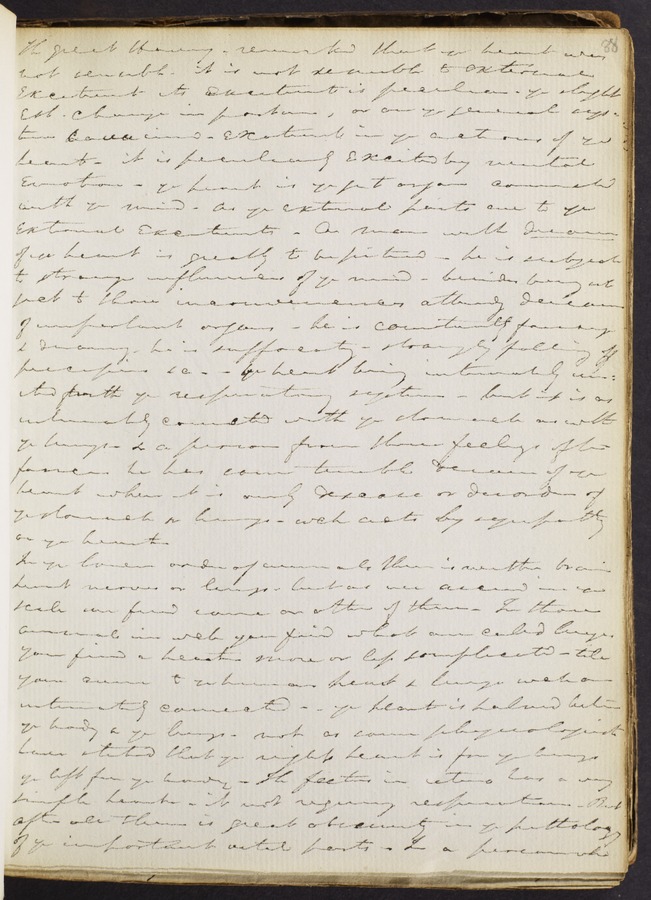 88
The great Harvey - remarked that ye heart was
not sensible. it is not sensible to external
Excitement its Excitement is peculiar - ye slight
Est change in posture, or any general
Excitement in ye actions of ye
heart - it is peculiarly Excited by mental
Emotion - ye heart is ye organ connected
with ye mind - as ye external parts are to ye
External Excitements - A man with disease
of ye heart is greatly to be pitied - he is subject
to strange influences of ye mind - besides being
to those inconveniences attending disease
of important organs - he is constantly
& dreaming he is suffocating - strangely falling off
precipices &c - ye heart being intimately
with ye respiratory system - but it is as
intimately connected with ye stomach as with
ye lungs - & a person from these feelings often
fancies he has some terrible disease of ye
heart when it is only disease or disorder of
ye stomach or lungs - wch acts by sympathy
on ye heart
In ye lower order of animals there is neither brain
heart nerves or lungs - but as we ascend in ye
scale we find some or other of them - In those
animals in wch you find what are called lungs
you find a heart more or less complicated - till
you come to ye human heart & lungs wch are
intimately connected - ye heart is halved between
ye body & ye lungs - not as some physiologists
have stated that ye right heart is for ye lungs
ye left for ye body - The foetus in utero has a very
simple heart - it not requiring respiration - But
after all there is great obscurity in ye pathology
of ye important vital parts - in a person who